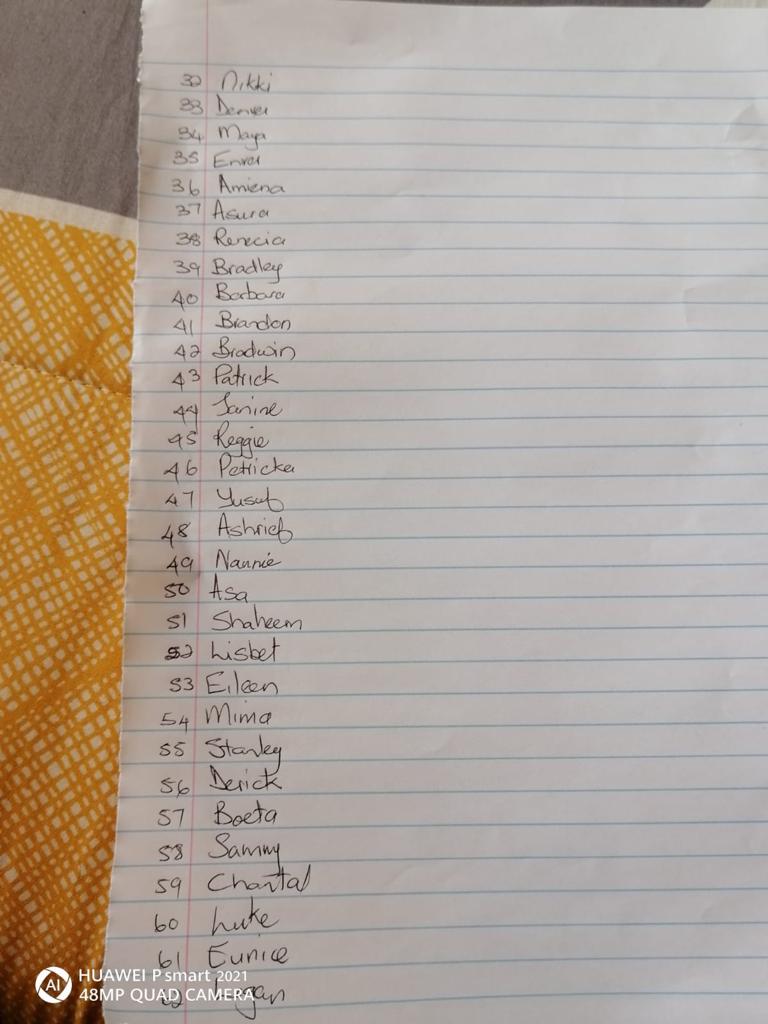 32 Nikki
33 Denver
34 Maya
35 Enver
36 Amiena
37 Asura
38 Renecia
39 Bradley
40 Barbara
41 Brandon
42 Bradwin
43 Patrick
44 Janine
45 Reggie
46 Petricka
47 Yusuf
48 Ashrief
49 Nannie
50 Asa
51 Shaheem
52 Lisbet
53 Eileen
54 Mima
55 Stanley
56 Derick
57 Boeta
58 Sammy
59 Chantal
60 Luke
61 Eunice
62
HUAWEI P smart 2021
48MP QUAD CAMERA
AI